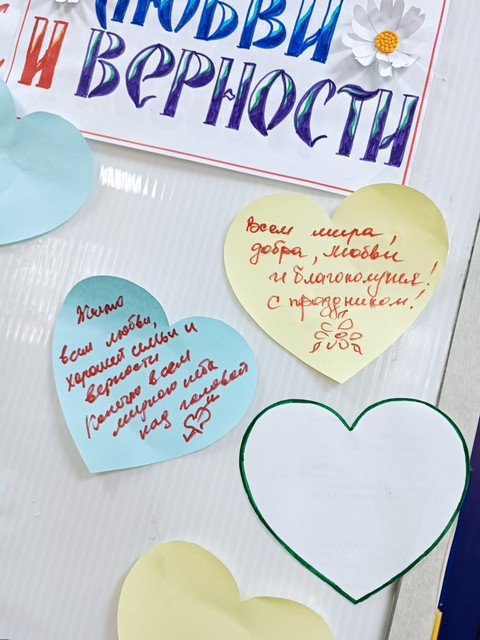 ЛЮБВИ
И ВЕРНОСТИ
Всем мира,
добра, любви
и благополучия!
с праздником!
всем любви,
хорошей семьи и
верности
Конечно всем
мирного неба
над головой